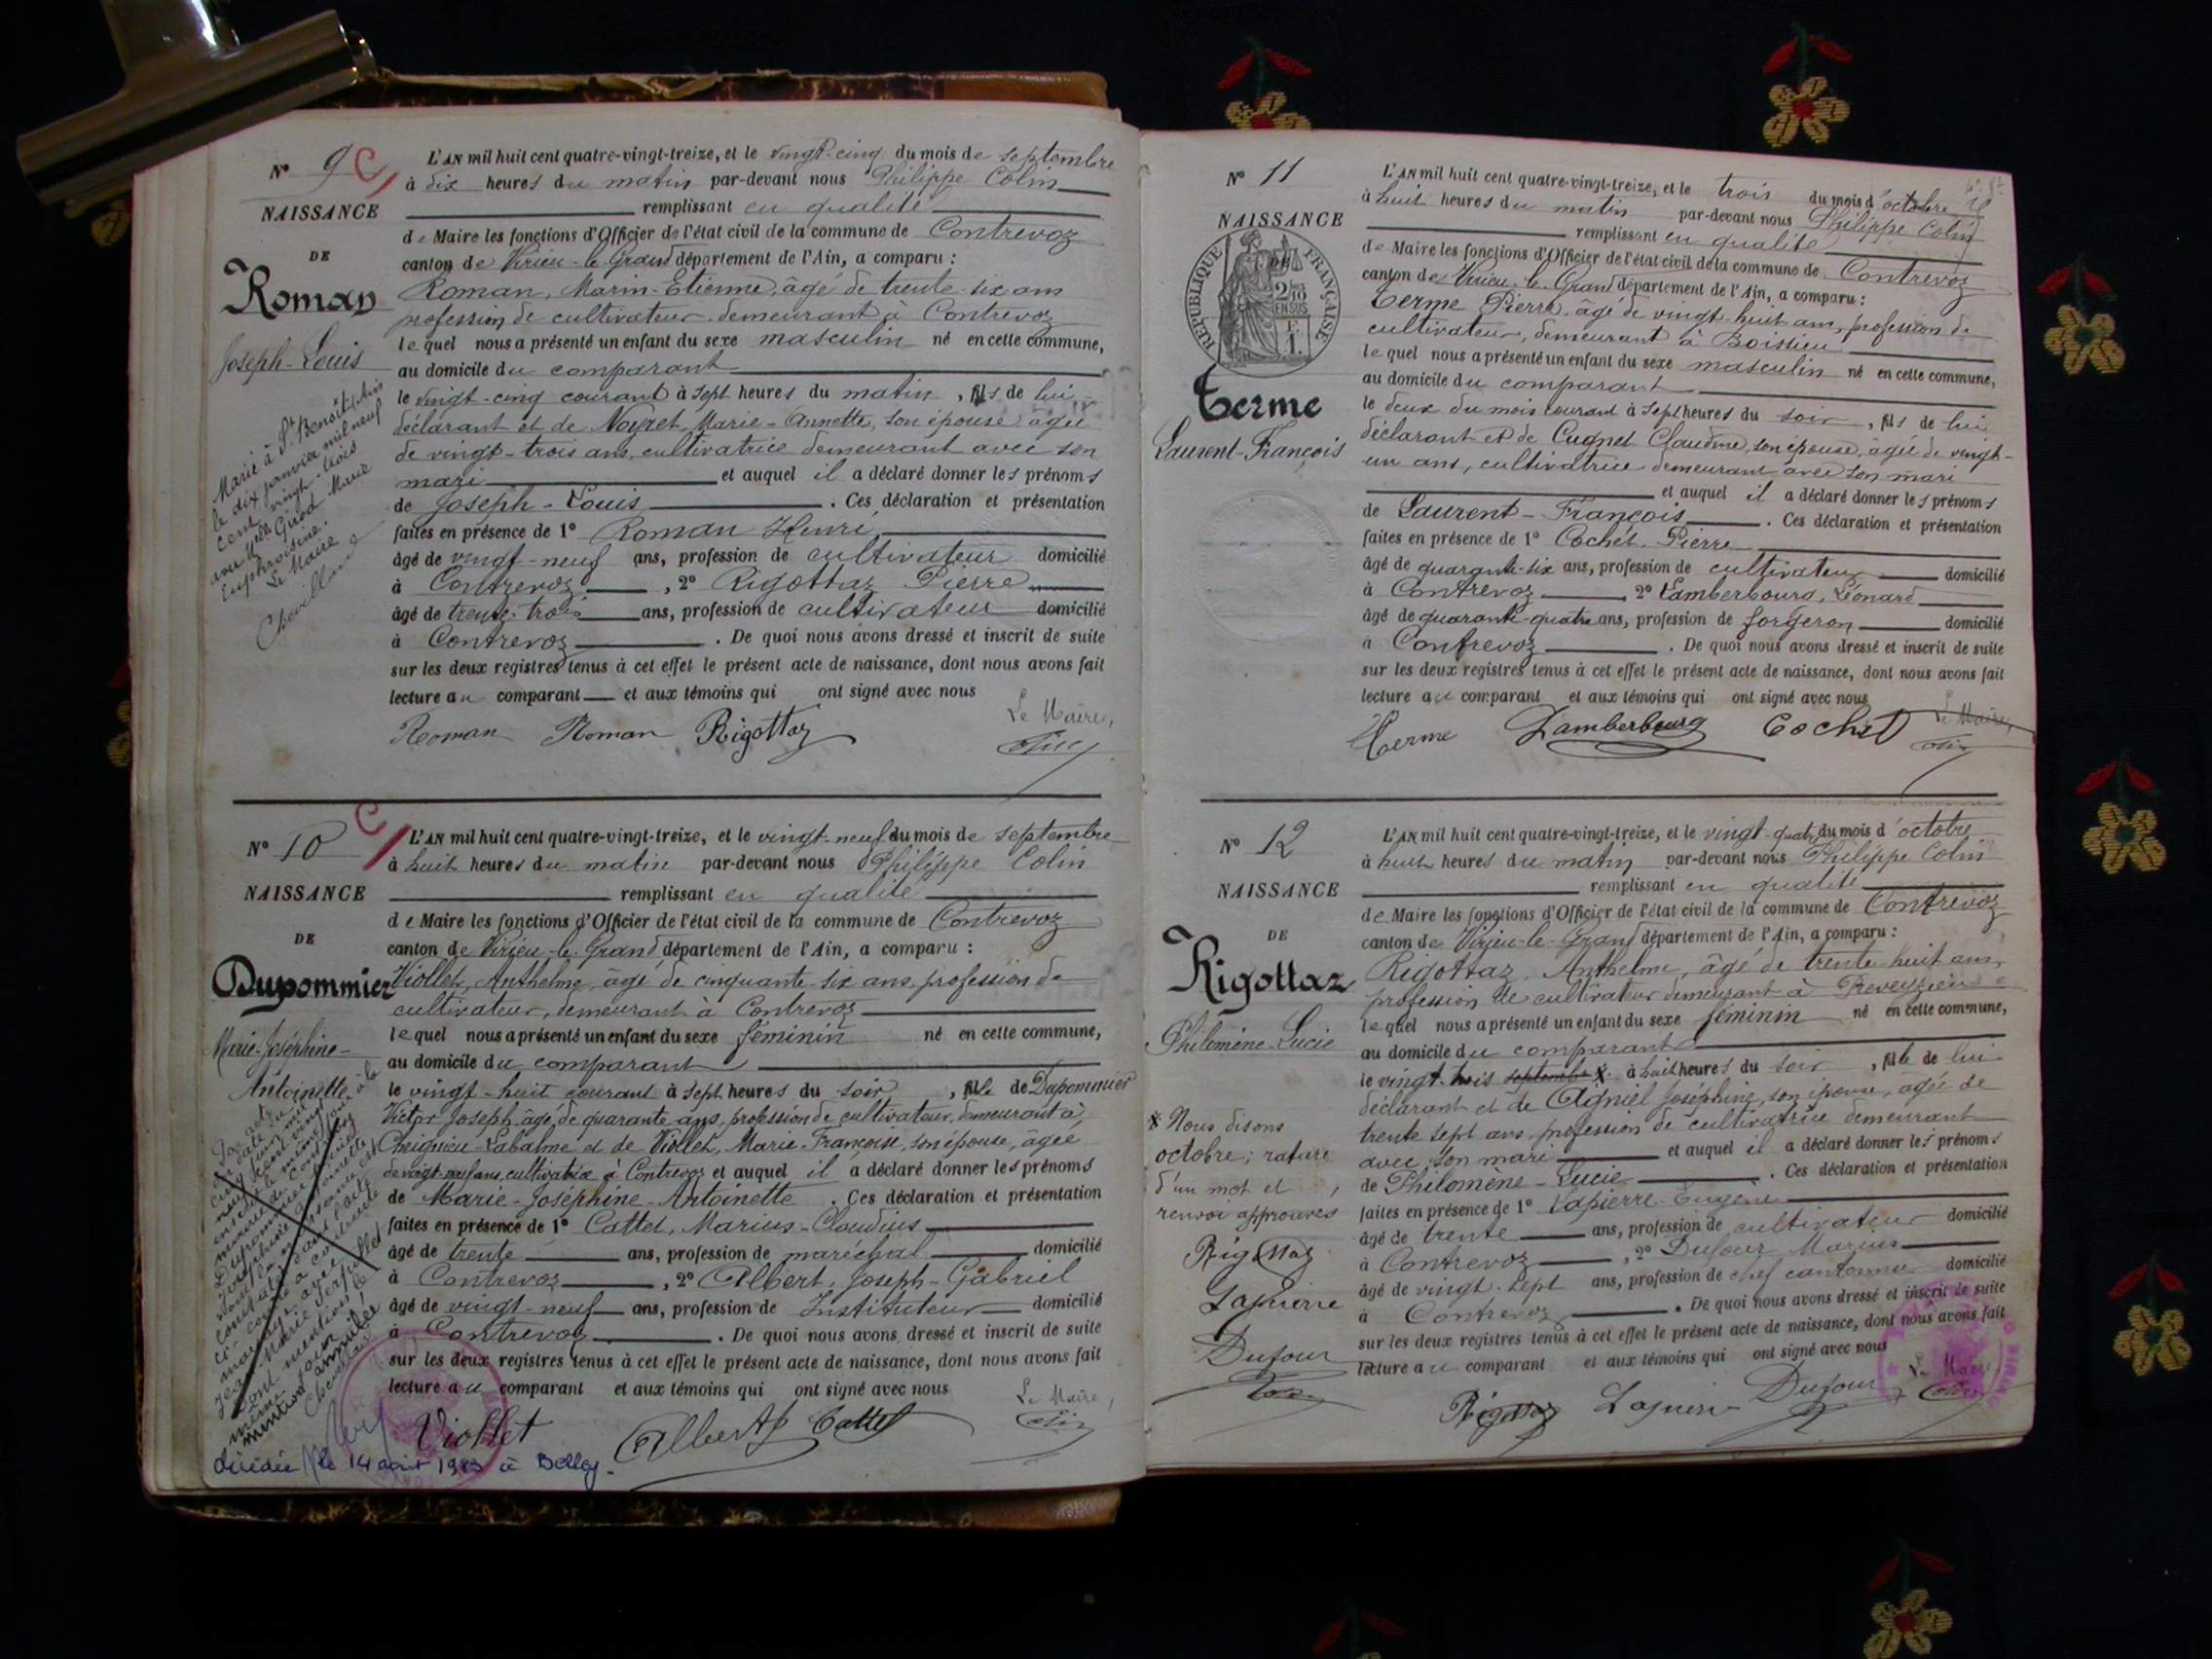 N° 9
NAISSANCE
DE
Roman
Joseph-Louis
Marié à St Benoît (Ain
le dix janvier mil neuf
cent vingt-trois
avec Melle Girod Marie
Euphroisine.
Le Maire
L'AN mil huit cent quatre-vingt-treize, et le vingt-cinq du mois de septembre
à dix heures du matin par-devant nous Philippe Colin
remplissant en qualité
de Maire les fonctions d'Officier de l'état civil de la commune de Contrevoz
canton de Virieu-le-Grand département de l'Ain, a comparu :
Roman, Marin-Etienne, âgé de trente-six ans
profession de cultivateur demeurant à Contrevoz
lequel nous a présenté un enfant du sexe masculin né en cette commune,
au domicile du comparant
le vingt-cinq courant à sept heures du matin, fils de lui
déclarant et de Noyret, Marie-Annette, son épouse âgée
de vingt-trois ans, cultivatrice demeurant avec son
mari et auquel il a déclaré donner les prénoms
de Joseph-Louis. Ces déclaration et présentation
faites en présence de 1° Roman Henri
âgé de vingt-neuf ans, profession de cultivateur domicilié
à Contrevoz, 2° Rigottaz Pierre
âgé de trente-trois ans, profession de cultivateur domicilié
à Contrevoz. De quoi nous avons dressé et inscrit de suite
sur les deux registres tenus à cet effet le présent acte de naissance, dont nous avons fait
lecture au comparant et aux témoins qui ont signé avec nous
Le Maire,
Roman Roman Rigottaz Colin
N° 10
NAISSANCE
DE
Dupommier
Marie-Joséphine-
Antoinette
mention annulée
L'AN mil huit cent quatre-vingt-treize, et le vingt-neuf du mois de septembre
à huit heures du matin par-devant nous Philippe Colin
remplissant en qualité
de Maire les fonctions d'Officier de l'état civil de la commune de Contrevoz
canton de Virieu-le-Grand département de l'Ain, a comparu :
Viollet, Anthelme, âgé de cinquante-six ans, profession de
cultivateur, demeurant à Contrevoz
lequel nous a présenté un enfant du sexe féminin né en cette commune,
au domicile du comparant
le vingt-huit courant à sept heures du soir, fille de Dupommier
Victor Joseph, âgé de quarante ans, profession de cultivateur, demeurant à
Cheignieu-Labalme et de Viollet, Marie-Françoise, son épouse, âgée
de vingt-neuf ans, cultivatrice à Contrevoz et auquel il a déclaré donner les prénoms
de Marie-Joséphine-Antoinette. Ces déclaration et présentation
faites en présence de 1° Cattet, Marius-Claudius
âgé de trente ans, profession de maréchal domicilié
à Contrevoz, 2° Albert, Joseph-Gabriel
âgé de vingt-neuf ans, profession de Instituteur domicilié
à Contrevoz. De quoi nous avons dressé et inscrit de suite
sur les deux registres tenus à cet effet le présent acte de naissance, dont nous avons fait
lecture au comparant et aux témoins qui ont signé avec nous
Le Maire,
Viollet Albert J Cattet Colin
décédée le 14 août 1983 à Belley.
N° 11
NAISSANCE
DE
REPUBLIQUE FRANÇAISE
2/10 EN SUS
Terme
Laurent-François
L'AN mil huit cent quatre-vingt-treize, et le trois du mois d'octobre
à huit heures du matin par-devant nous Philippe Colin
remplissant en qualité
de Maire les fonctions d'Officier de l'état civil de la commune de Contrevoz
canton de Virieu-le-Grand département de l'Ain, a comparu :
Terme Pierre, âgé de vingt-huit ans, profession de
cultivateur, demeurant à Boissieu
lequel nous a présenté un enfant du sexe masculin né en cette commune,
au domicile du comparant
le deux du mois courant à sept heures du soir, fils de lui
déclarant et de Cugnet Claudine, son épouse, âgée de vingt-
un ans, cultivatrice demeurant avec son mari
et auquel il a déclaré donner les prénoms
de Laurent-François. Ces déclaration et présentation
faites en présence de 1° Cochet, Pierre
âgé de quarante-six ans, profession de cultivateur domicilié
à Contrevoz, 2° Lamberbourg, Léonard
âgé de quarante-quatre ans, profession de forgeron domicilié
à Contrevoz. De quoi nous avons dressé et inscrit de suite
sur les deux registres tenus à cet effet le présent acte de naissance, dont nous avons fait
lecture au comparant et aux témoins qui ont signé avec nous
Le Maire,
Terme Lamberbourg Cochet Colin
N° 12
NAISSANCE
DE
Rigottaz
Philomène-Lucie
* Nous disons
octobre; rature
d'un mot et
renvoi approuvés
Rigottaz
Lapierre
Dufour
Colin
L'AN mil huit cent quatre-vingt-treize, et le vingt-quatre du mois d'octobre
à huit heures du matin par-devant nous Philippe Colin
remplissant en qualité
de Maire les fonctions d'Officier de l'état civil de la commune de Contrevoz
canton de Virieu-le-Grand département de l'Ain, a comparu :
Rigottaz, Anthelme, âgé de trente-huit ans,
profession de cultivateur demeurant à Preveyzieu
lequel nous a présenté un enfant du sexe féminin né en cette commune,
au domicile du comparant
le vingt-trois septembre * à huit heures du soir, fille de lui
déclarant et de Agniel Joséphine, son épouse, âgée de
trente sept ans, profession de cultivatrice demeurant
avec son mari et auquel il a déclaré donner les prénoms
de Philomène-Lucie. Ces déclaration et présentation
faites en présence de 1° Lapierre Eugène
âgé de trente ans, profession de cultivateur domicilié
à Contrevoz, 2° Dufour Marius
âgé de vingt-sept ans, profession de chef cantonnier domicilié
à Contrevoz. De quoi nous avons dressé et inscrit de suite
sur les deux registres tenus à cet effet le présent acte de naissance, dont nous avons fait
lecture au comparant et aux témoins qui ont signé avec nous
Le Maire
Rigottaz Lapierre Dufour Colin